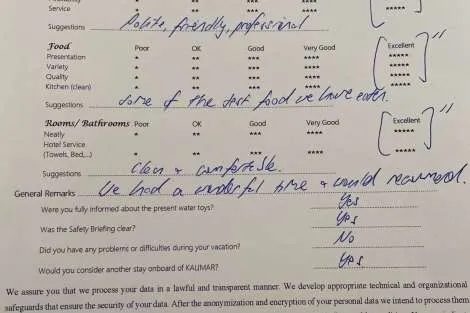 Service * ** *** **** *****
Suggestions Polite, friendly, professional
Food Poor OK Good Very Good Excellent "
Presentation * ** *** **** *****
Variety * ** *** **** *****
Quality * ** *** **** *****
Kitchen (clean) * ** *** **** *****
Suggestions Some of the best food we have eaten.
Rooms/ Bathrooms Poor OK Good Very Good Excellent "
Neatly * ** *** **** *****
Hotel Service
(Towels, Bed,...) * ** *** **** *****
Suggestions Clean + comfortable.
General Remarks We had a wonderful time + would recommend.
Were you fully informed about the present water toys? Yes
Was the Safety Briefing clear? Yes
Did you have any problems or difficulties during your vacation? No
Would you consider another stay onboard of KALIMAR? Yes
We assure you that we process your data in a lawful and transparent manner. We develop appropriate technical and organizational
safeguards that ensure the security of your data. After the anonymization and encryption of your personal data we intend to process them